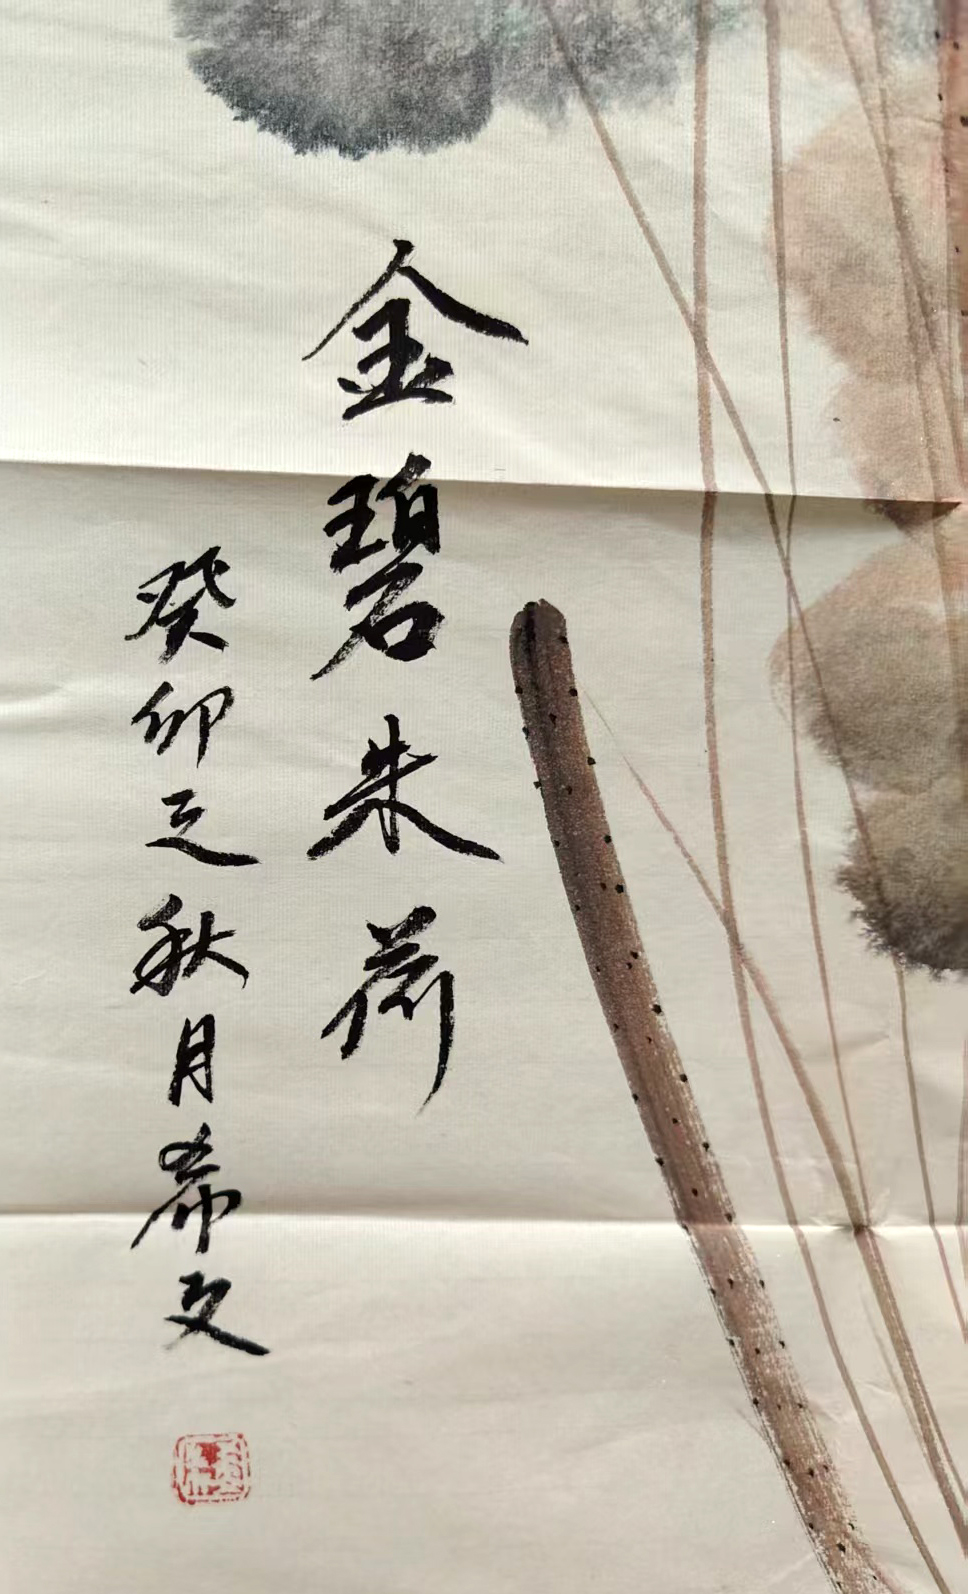 金碧朱荷
癸卯之秋月希文